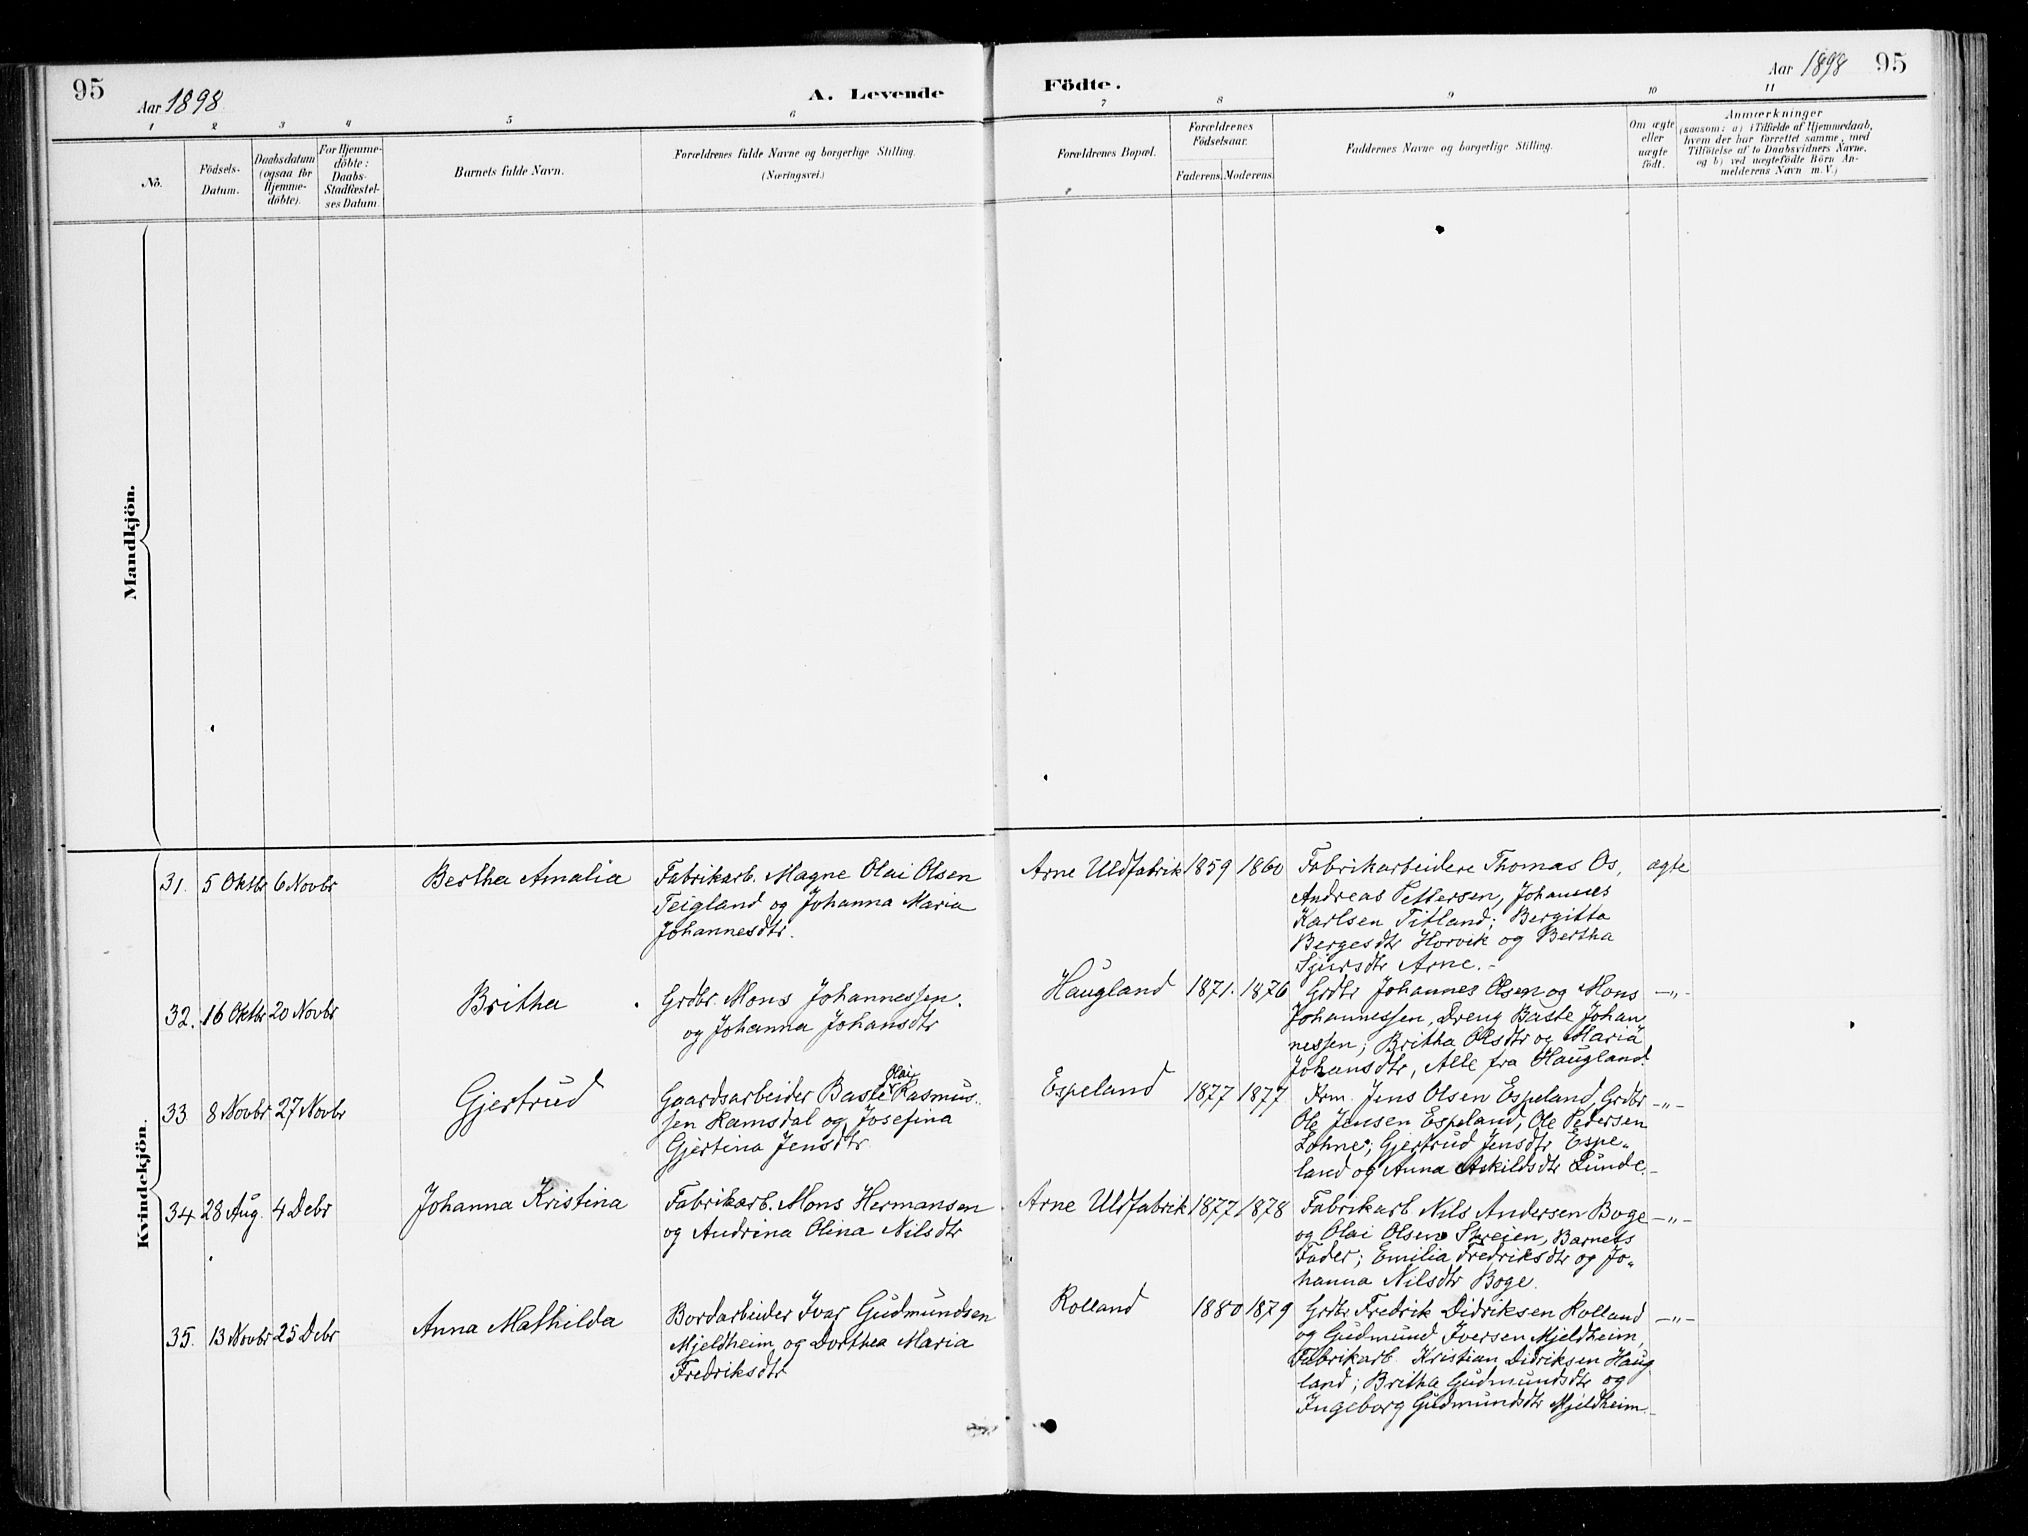 95
Aar 1898
A. Levende
Födte.
Aar 1898 95
1 2 3 4 5 6 7 8 9 10 11
No.
Födsels-
Datum.
Daabsdatum
(ogsaa for
Hjemme-
döbte).
For Hjemme-
döbte:
Daabs-
Stadfæstel-
ses Datum.
Barnets fulde Navn.
Forældrenes fulde Navne og borgerlige Stilling.
(Næringsvei.)
Forældrenes Bopæl.
Forældrenes
Födselsaar.
Faderens. Moderens.
Faddernes Navne og borgerlige Stilling.
Om ægte
eller
uægte
födt.
Anmærkninger
(saasom: a) i Tilfælde af Hjemmedaab,
hvem der har forrettet samme, med
Tilföielse af to Daabsvidners Navne,
og b) ved uægtefödte Börn An-
melderens Navn m. V.)
Mandkjön.
Kvindekjön.
31. 5 Oktbr 6 Novbr
Bertha Amalia
Fabrikarb. Magne Olai Olsen
Teigland og Johanna Maria
Johannesdtr.
Arne Uldfabrik 1859 1860
Fabrikarbeidere Thomas Os,
Andreas Pettersen, Johannes
Karlsen Titland; Bergitta
Bergesdtr Horvik og Bertha
Sjursdtr Arne.-
ægte
32. 16 Oktbr 20 Novbr
Britha
Grdbr. Mons Johannessen
og Johanna Johansdtr
Haugland 1871. 1876
Grdbr Johannes Olsen og Mons
Johannessen, Dreng Baste Johan
nessen; Britha Olsdtr og Maria
Johansdtr, Alle fra Haugland.
-"-
33 8 Novbr 27 Novbr
Gjertrud
Gaardsarbeider Baste Olai Rasmus-
sen Ramsdal og Josefina
Gjertina Jensdtr.
Espeland 1877 1877
Krm. Jens Olsen Espeland, Grdbr
Ole Jensen Espeland, Ole Pedersen
Lohne; Gjertrud Jensdtr Espe-
land og Anna Askildsdtr Lunde.-
-"-
34 28 Aug. 4 Debr
Johanna Kristina
Fabrikarb. Mons Hermansen
og Andrina Olina Nilsdtr
Arne Uldfabrik 1877 1878
Fabrikarb Nils Andersen Boge
og Olai Olsen Streien, Barnets
Fader; Emilia Fredriksdtr og Jo-
hanna Nilsdtr Boge.
-"-
35. 13 Novbr 25 Debr
Anna Mathilda
Bordarbeider Ivar Gudmundsen
Mjeldheim og Dorthea Maria
Fredriksdtr
Rolland 1880 1879
Grdbr Fredrik Didriksen Rolland
og Gudmund Iversen Mjeldheim,
Fabrikarb. Kristian Didriksen Haug
land; Britha Gudmundsdtr og
Ingeborg Gudmundsdtr Mjeldheim.-
-"-